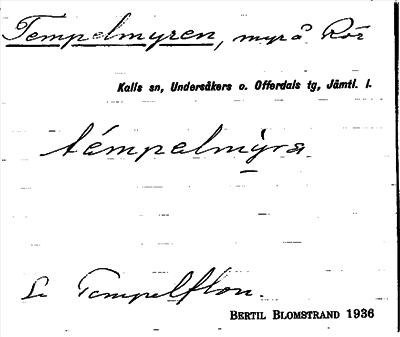 Tempelmyren, myrå Rör
Kalls sn, Undersåkers o. Offerdals tg, Jämtl. l.
témpelmỳra
Se Tempelflon.
BERTIL BLOMSTRAND 1936